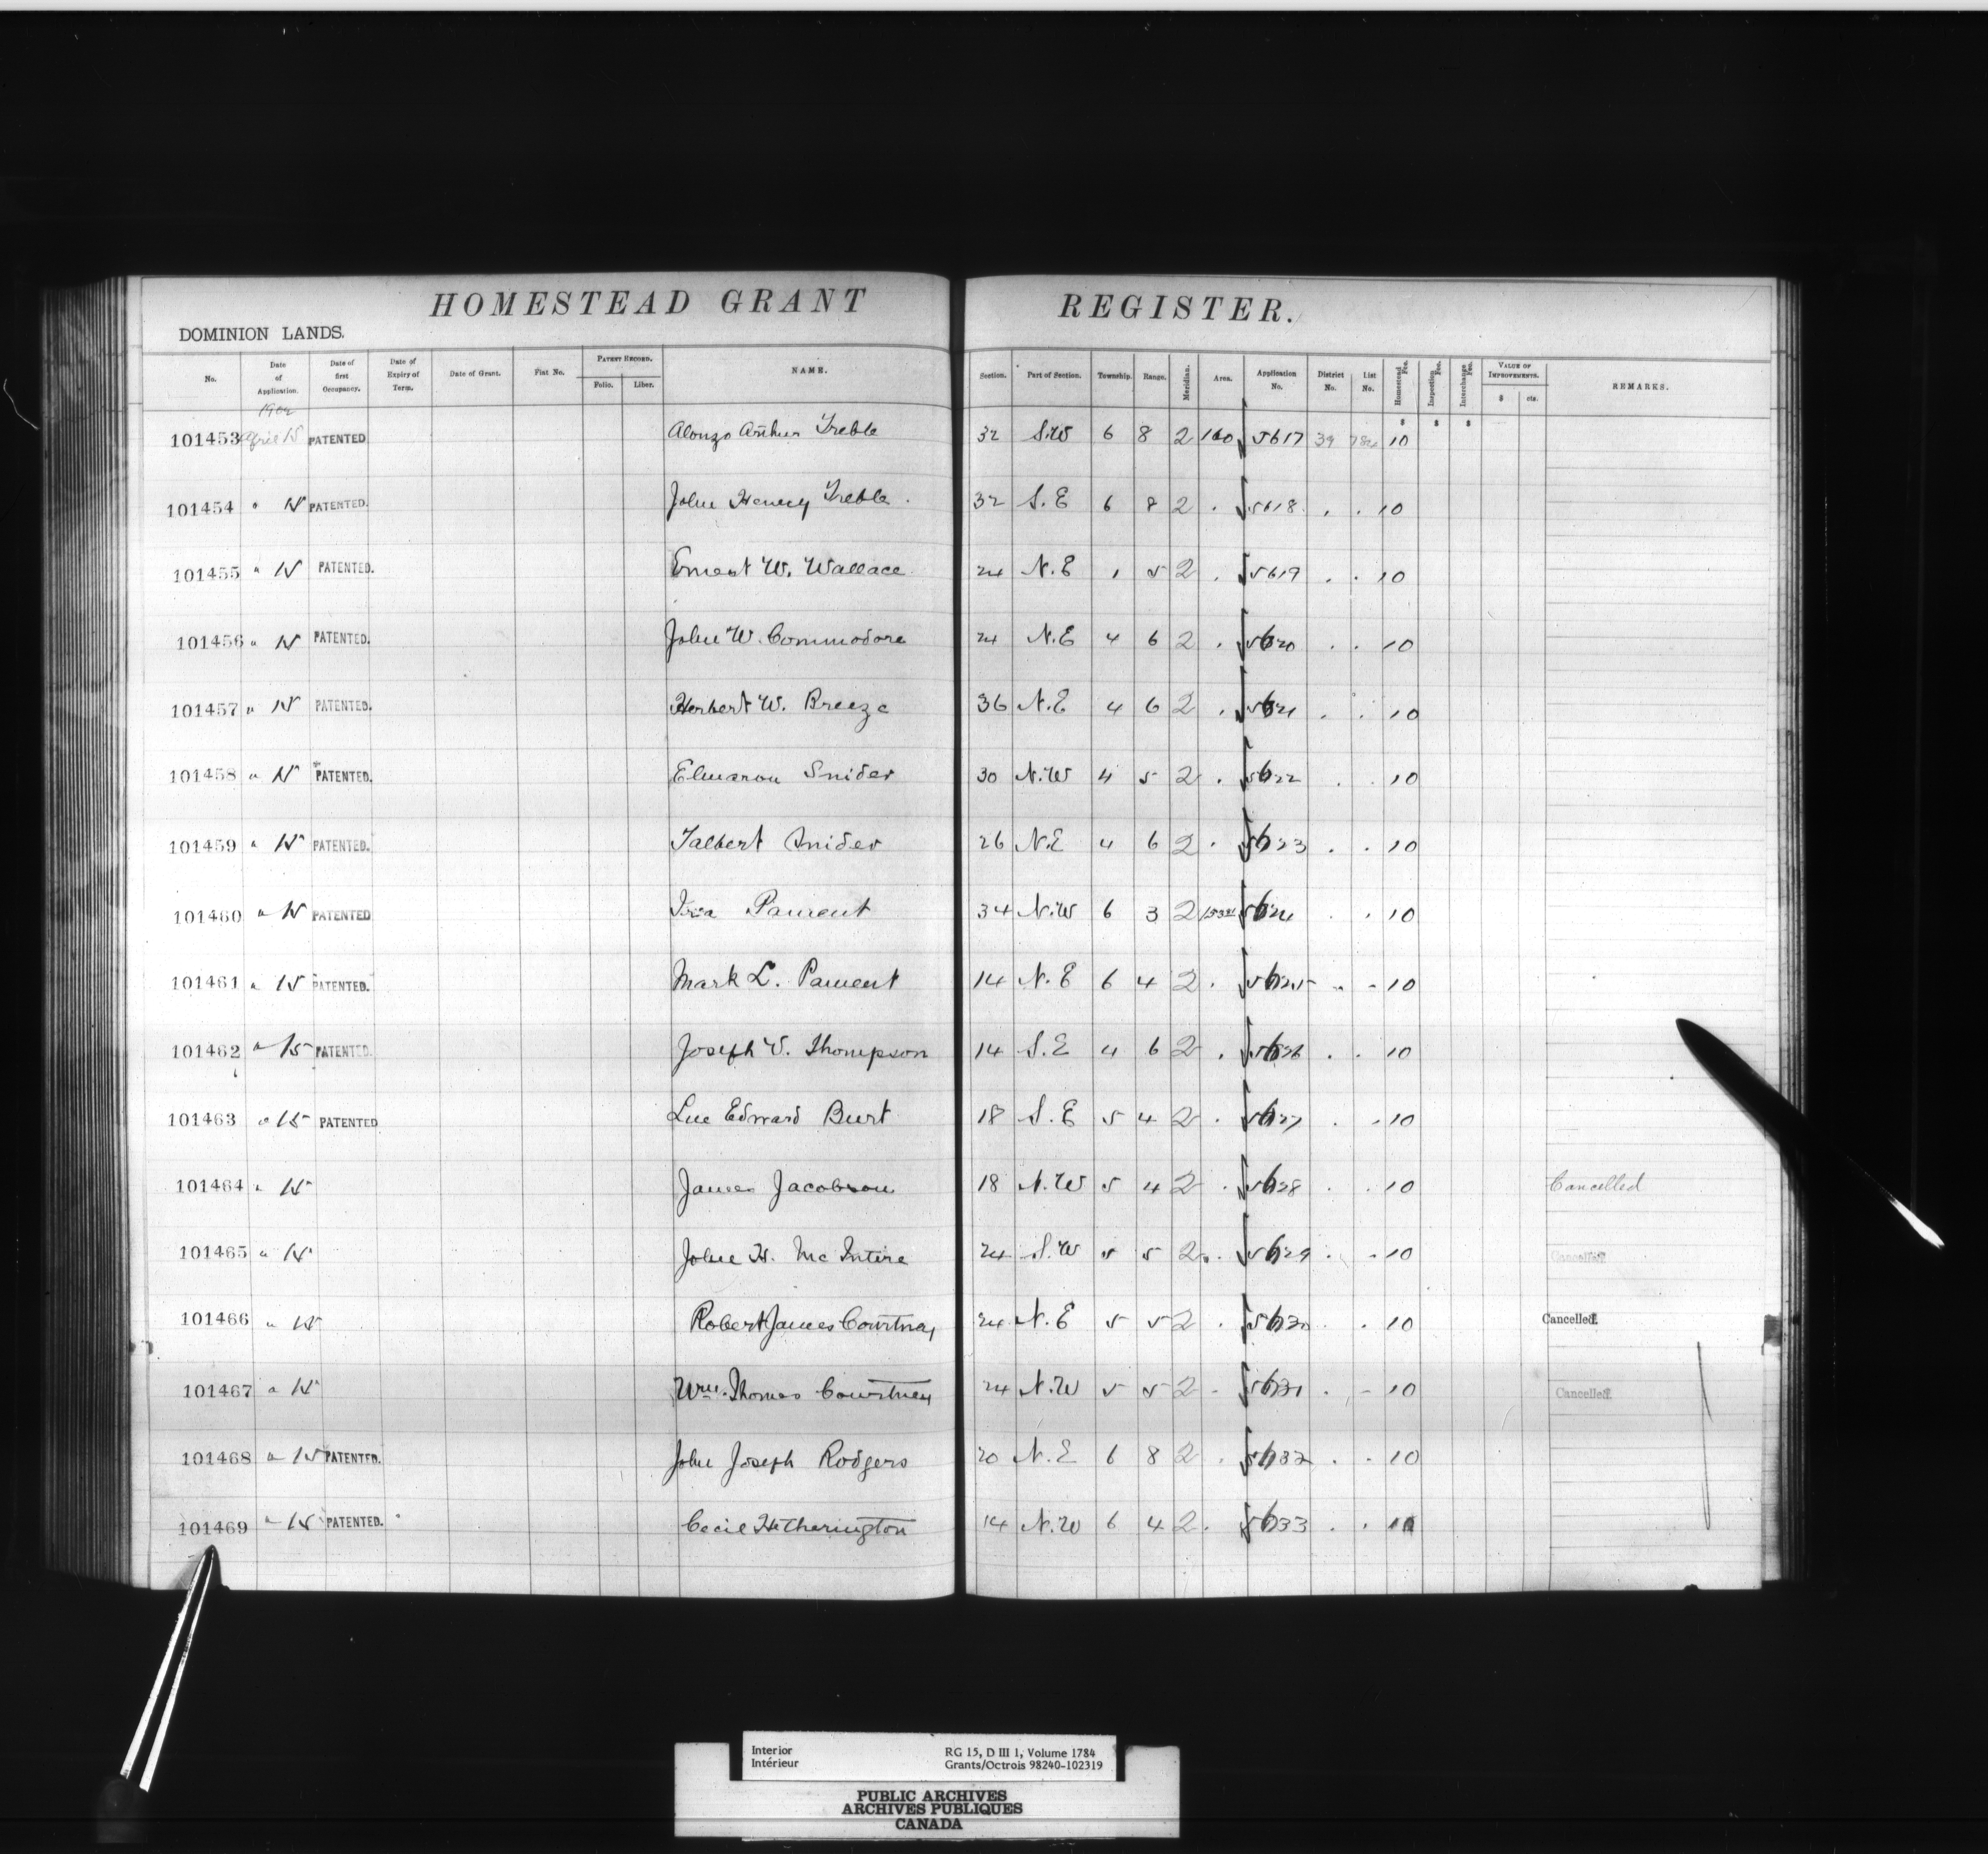 HOMESTEAD GRANT REGISTER.
DOMINION LANDS.
No. Date of Application. Date of first Occupancy. Date of Expiry of Term. Date of Grant. Fiat No. PATENT RECORD. Folio. Liber. NAME. Section. Part of Section. Township. Range. Meridian. Area. Application No. District No. List No. Homestead Fee. Inspection Fee. Interchange Fee. VALUE OF IMPROVEMENTS. $ cts. REMARKS.
1902 $ $ $
101453 April 15 PATENTED Alonzo Arthur Treble 32 S.W 6 8 2 160 5617 39 10
101454 " 15 PATENTED. John Henry Treble. 32 S.E 6 8 2 . 5618 . . 10
101455 " 15 PATENTED. Ernest W. Wallace 24 N.E 1 5 2 . 5619 . . 10
101456 " 15 PATENTED. John W. Commodore 24 N.E 4 6 2 . 5620 . . 10
101457 " 15 PATENTED. Herbert W. Breeze 36 N.E 4 6 2 . 5621 . . 10
101458 " 15 PATENTED. Snider 30 N.W 4 5 2 . 5622 . . 10
101459 " 15 PATENTED. Talbert Snider 26 N.E 4 6 2 . 5623 . . 10
101460 " 15 PATENTED 34 N.W 6 3 2 5624 . . 10
101461 " 15 PATENTED. Mark L. 14 N.E 6 4 2 . 5625 " - 10
101462 " 15 PATENTED. Joseph V. Thompson 14 S.E 4 6 2 . 5626 . . 10
101463 " 15 PATENTED Edward Burt 18 S.E 5 4 2 . 5627 . - 10
101464 " 15 James Jacobson 18 N.W 5 4 2 . 5628 . . 10 Cancelled
101465 " 15 John H. McIntire 24 S.W 5 5 2 . 5629 . - 10 Cancelled.
101466 " 15 Robert James Courtney 24 N.E 5 5 2 . 5630 . . 10 Cancelled.
101467 " 15 Wm. Thomas Courtney 24 N.W 5 5 2 - 5631 . - 10 Cancelled.
101468 " 15 PATENTED. John Joseph Rodgers 20 N.E 6 8 2 . 5632 . - 10
101469 " 15 PATENTED. Cecil Hetherington 14 N.W 6 4 2 . 5633 . . 10
Interior RG 15, D III 1, Volume 1784
Intérieur Grants/Octrois 98240-102319
PUBLIC ARCHIVES
ARCHIVES PUBLIQUES
CANADA